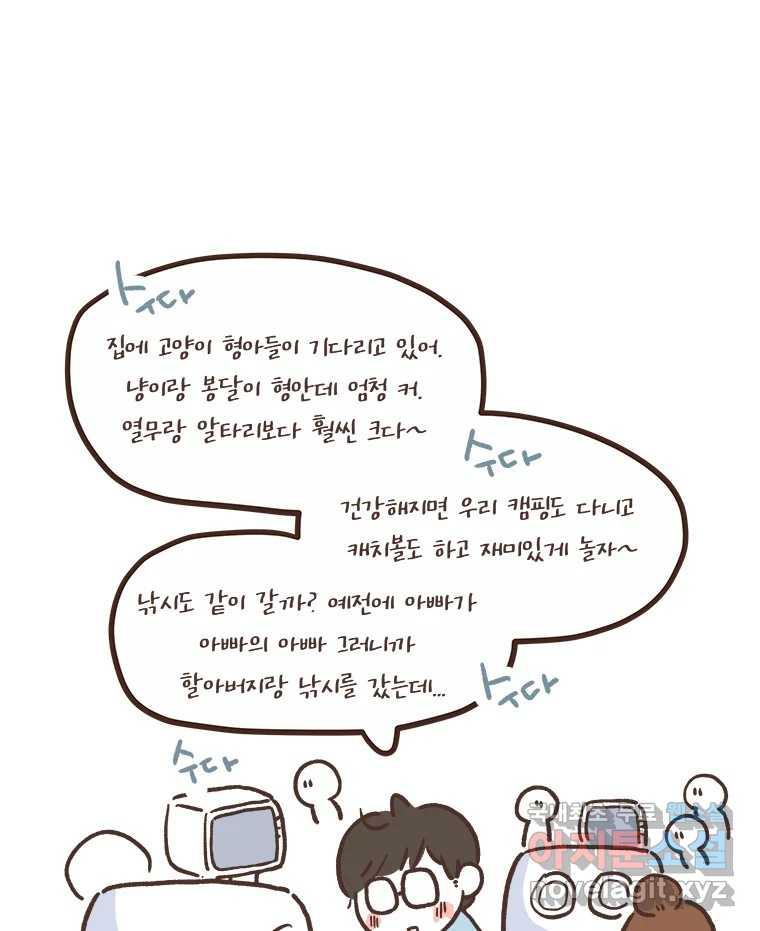 수다
집에 고양이 형아들이 기다리고 있어.
냥이랑 봉달이 형안데 엄청 커.
열무랑 알타리보다 훨씬 크다~
수다
건강해지면 우리 캠핑도 다니고
캐치볼도 하고 재미있게 놀자~
낚시도 같이 갈까? 예전에 아빠가
아빠의 아빠 그러니까
할아버지랑 낚시를 갔는데...
수다
수다
국내최초 무료 웹소설
아지툰소설
novelagit.xyz